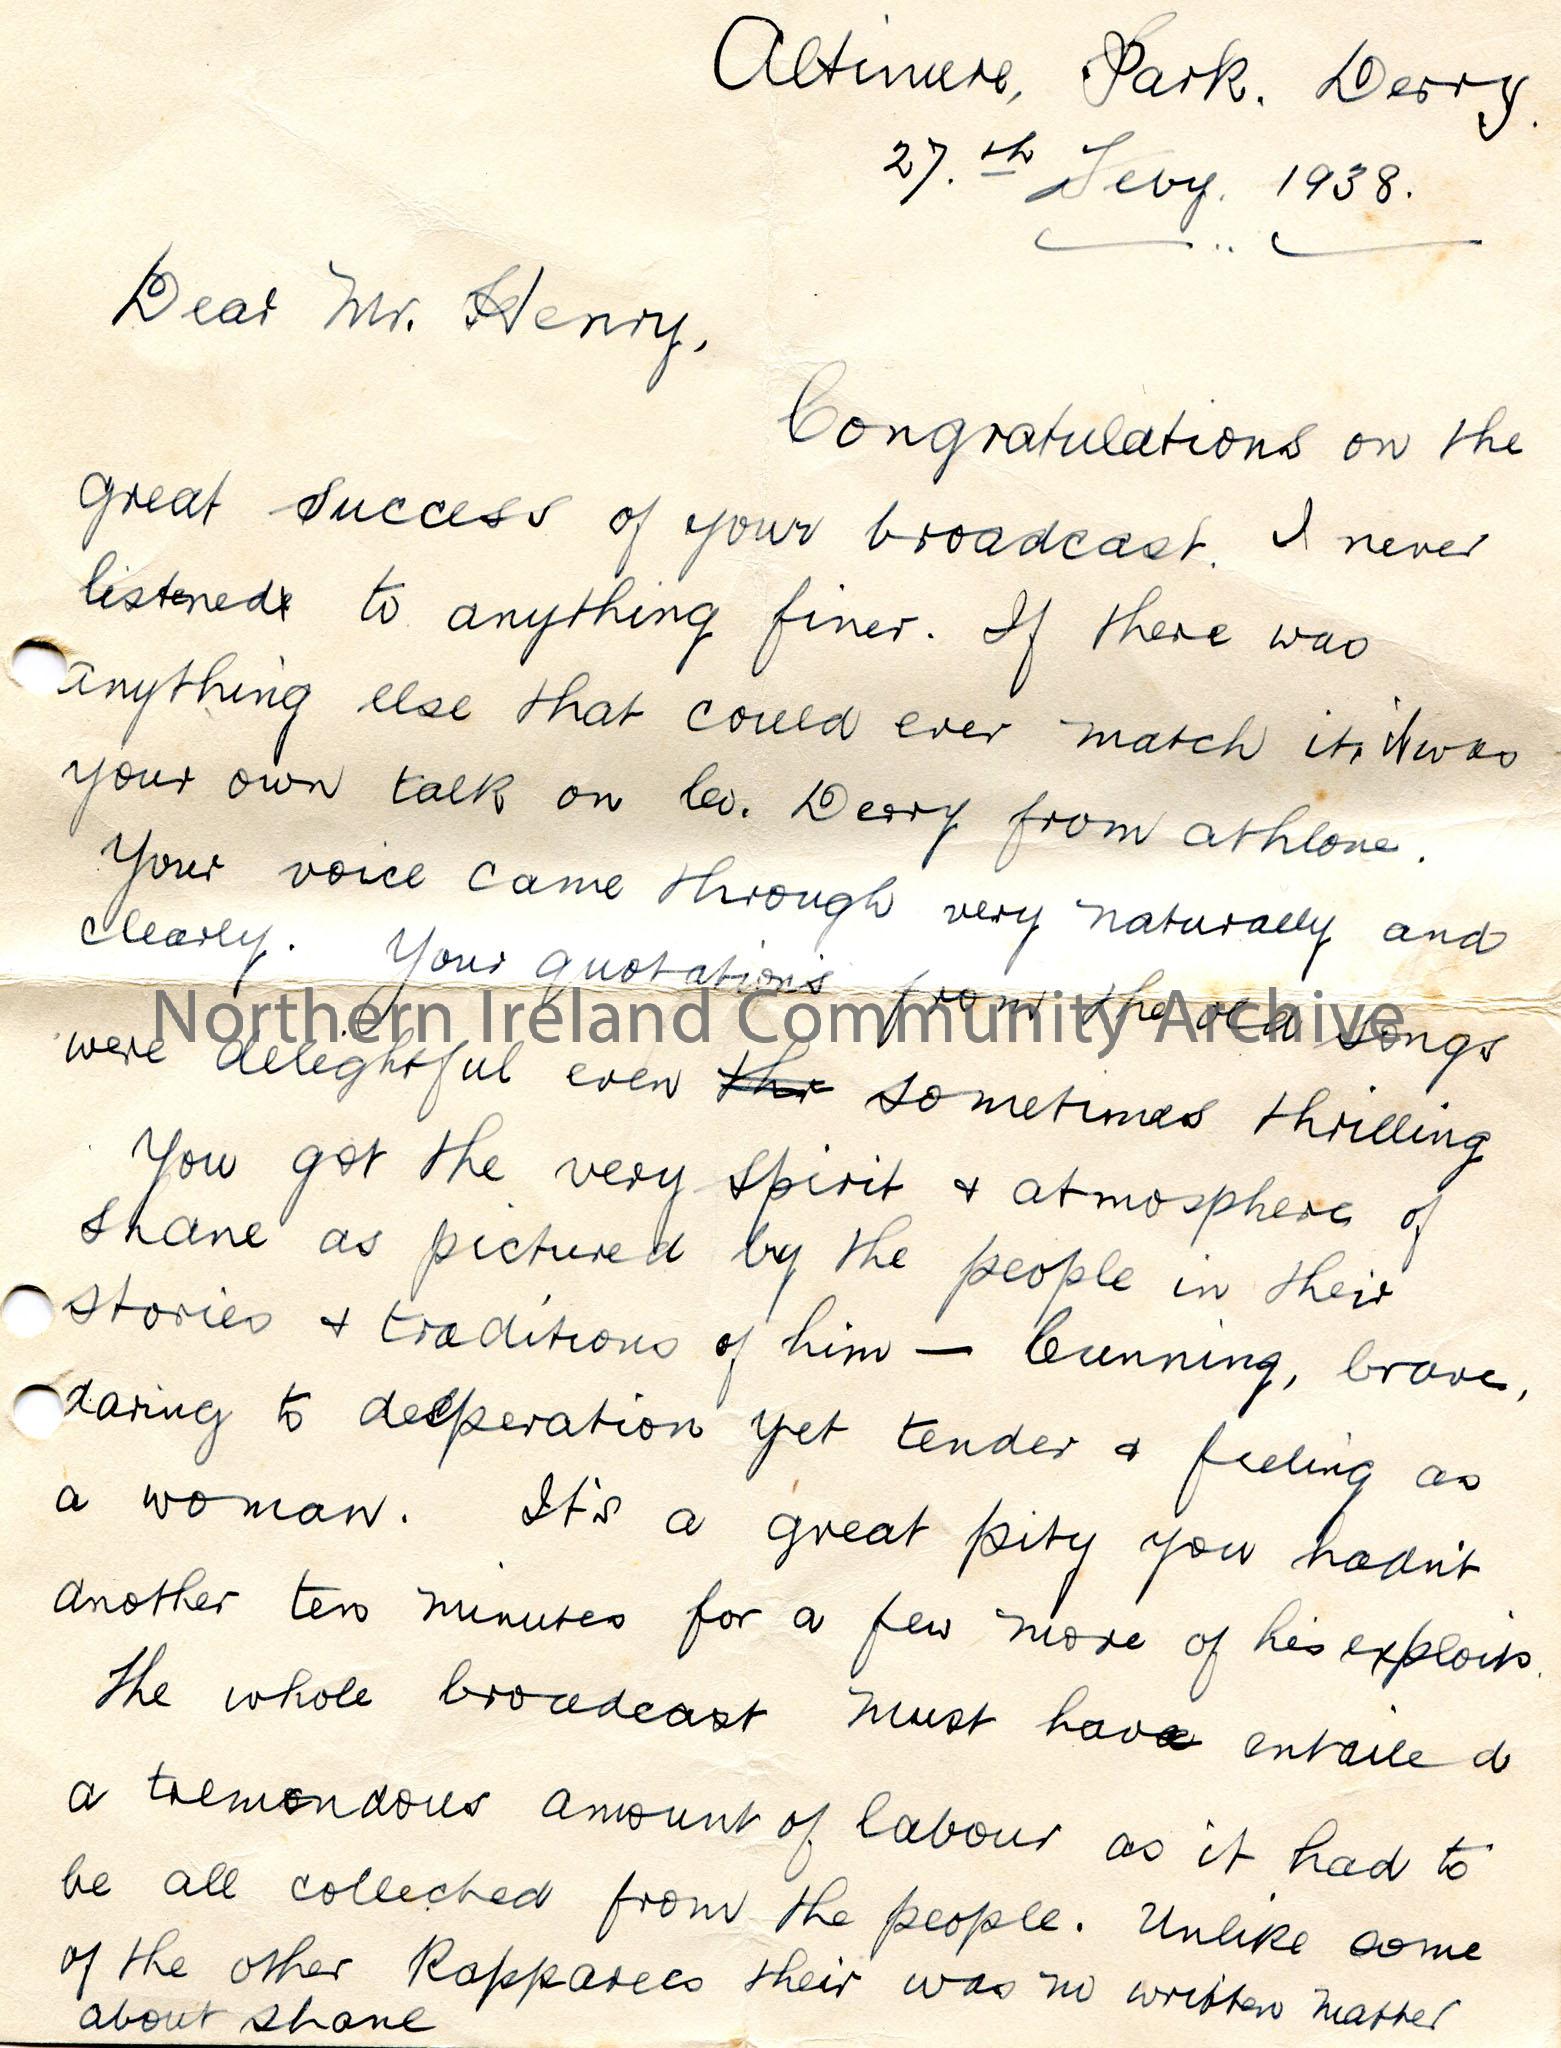 Altimore, Park. Derry.
27.th Feby. 1938.
Dear Mr. Henry,
Congratulations on the
great success of your broadcast. I never
listened to anything finer. If there was
anything else that could ever match it, it was
your own talk on Co. Derry from athlone.
Your voice came through very naturally and
clearly. Your quotations from the old songs
Northern Ireland Community Archive
were delightful even thr sometimes thrilling
You got the very spirit & atmosphere of
Shane as pictured by the people in their
stories & traditions of him — Cunning, brave,
daring to desperation yet tender & feeling as
a woman. It's a great pity you hadn't
another ten minutes for a few more of his exploits.
The whole broadcast must have entailed
a tremendous amount of labour as it had to
be all collected from the people. Unlike some
of the other Rapparees their was no written matter
about Shane